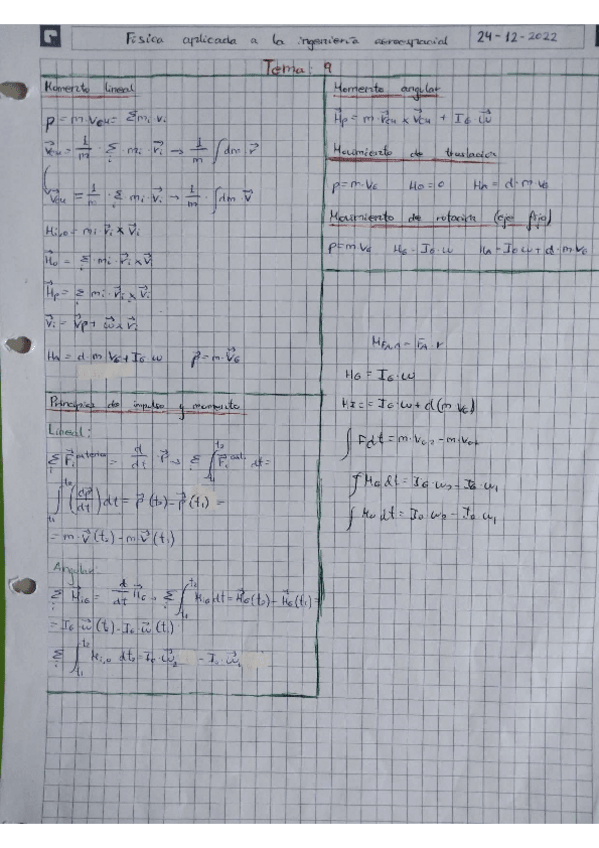 Física aplicada a la ingeniería aeroespacial 24-12-2022
Tema: 9
Momento lineal
p = m·v_CM = Σ m_i·v_i
v⃗_CM = 1/m · Σ m_i · v⃗_i → 1/m ∫ dm · v⃗
v⃗_CM = 1/m · Σ m_i · v⃗_i → 1/m · ∫ dm v⃗
H_i,o = m_i · r⃗_i × v⃗_i
H⃗_o = Σ m_i · r⃗_i × v⃗
H⃗_p = Σ m_i · r⃗_i × v⃗_i
v⃗_i = v⃗_p + ω⃗ × r⃗_i
H_A = d·m·v_G + I_G·ω p⃗ = m·v⃗_G
Principios de impulso y momento
Lineal:
= d/dt · p⃗ →
∫ (dp⃗/dt) dt = p⃗(t₂) - p⃗(t₁) =
= m·v⃗(t₂) - m·v⃗(t₁)
Angular:
= d/dt H⃗_G → Σ ∫ M_iG dt = H⃗_G(t₂) - H⃗_G(t₁) =
= I_G·ω⃗(t) - I_G·ω⃗(t)
Σ ∫ M_i,o dt = I_o·ω⃗₂ - I_o·ω⃗₁
Momento angular
H⃗_p = m·r⃗_CM × v⃗_CM + I_G·ω⃗
Movimiento de traslación
p = m·v_G H_G = 0 H_A = d·m·v_G
Movimiento de rotación (eje fijo)
p = m·v_G H_G = I_G·ω H_A = I_G·ω + d·m·v_G
H_G = I_G·ω
= I_G·ω + d(m·v_G)
∫ F dt = m·v_G2 - m·v_G1
∫ M_G dt = I_G·ω₂ - I_G·ω₁
∫ M_o dt = I_o·ω₂ - I_o·ω₁